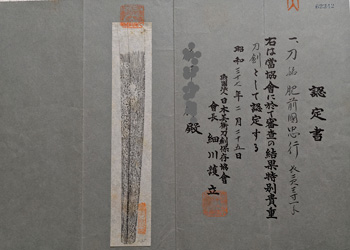 認定書
一、刀 銘 肥前國忠行
右は當協會に於て審査の結果特別貴重
刀劍として認定する
昭和三十八年二月二十五日
財團法人日本美術刀劍保存協會
會長 細川護立
殿